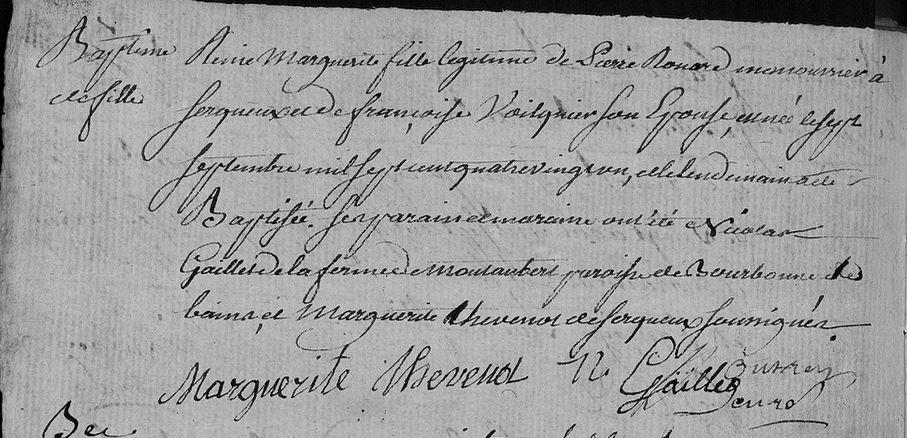 Baptême
de fille
Reine Marguerite fille legitime de Pierre Rouard manouvrier à
Serqueux et de françoise Voilqnier son Epouse, est née le sept
septembre mil sept cent quatrevingt un, et le lendemain a été
Baptisée. ses parain et maraine ont été Nicolas
Gaillet de la ferme de Montaubert paroisse de Bourbonne les
bains, et Marguerite thevenot de Serqueux soussignés
Marguerite thevenot N Gaillet
curé